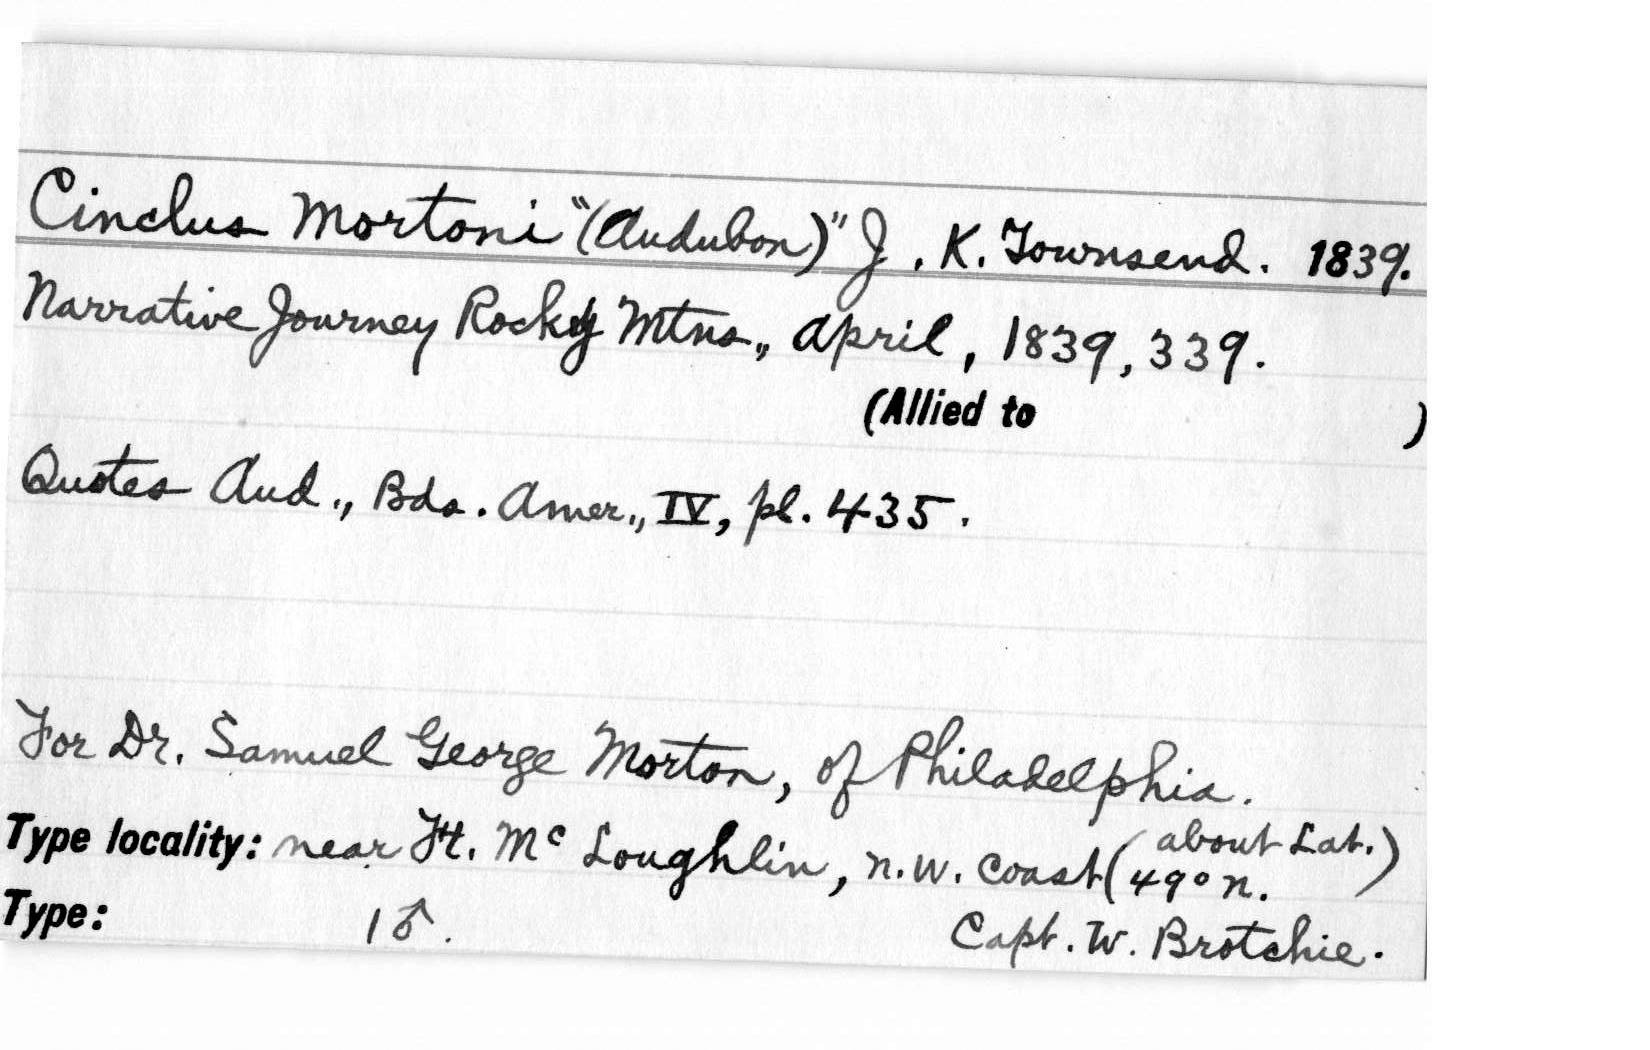 Cinclus Mortoni "(Audubon)" J. K. Townsend. 1839.
Narrative Journey Rocky Mtns., April, 1839, 339.
(Allied to )
Quotes Aud., Bds. Amer., IV, pl. 435.
For Dr. Samuel George Morton, of Philadelphia.
Type locality: near Ft. McLoughlin, N.W. Coast (about Lat. 49° N.)
Type: 1♂. Capt. W. Brotchie.